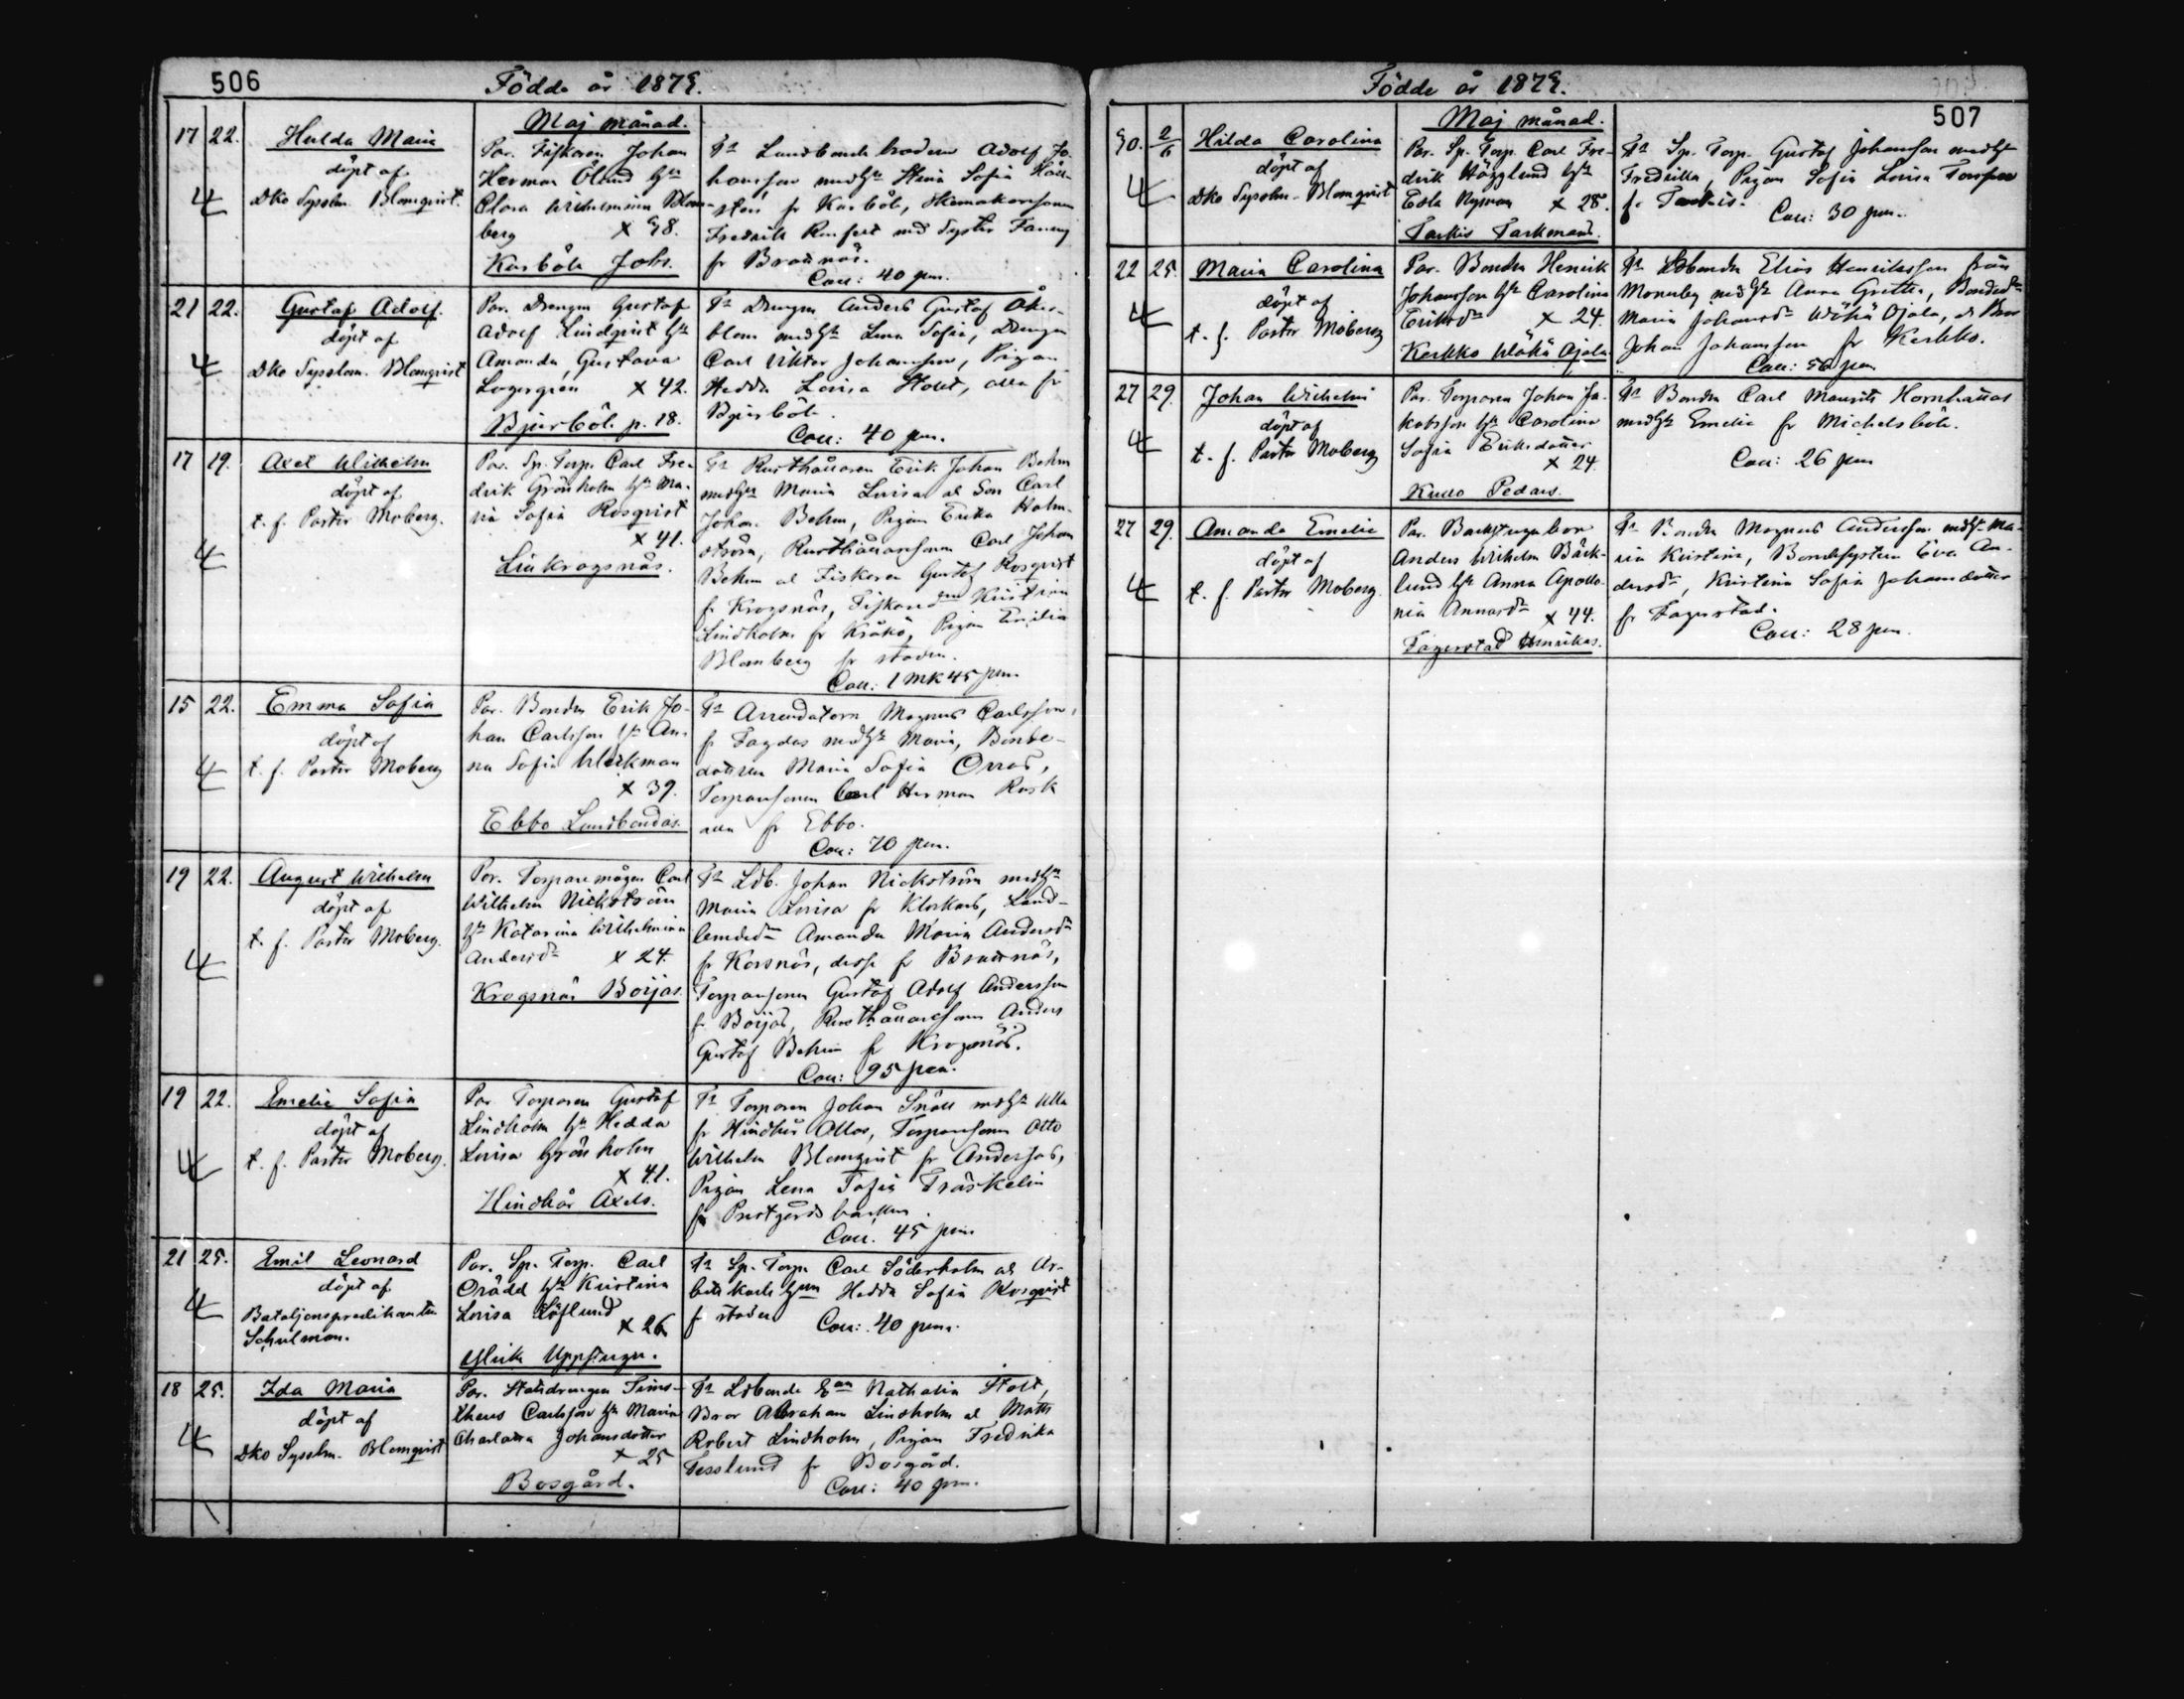 506
Födde år 1879.
Maj månad.
17 22. Hulda Maria
döpt af
Dko Sysslom. Blomqvist.
4
Par. Fiskaren Johan
Herman Ölund hu
Clara Wilhelmina Blom-
berg x 38.
Karböle Jobs.
Fa Landbonde brodern Adolf Jo-
hansson med hu Stina Sofia
fr Karböle,
Fredrik med Syster Fanny
fr Brednäs.
Coll: 40 pen.
21 22. Gustaf Adolf.
döpt af
Dko Sysslom. Blomqvist
4
Par. Drengen Gustaf
Adolf Lindqvist hu
Amanda Gustava
Lagergren x 42.
Bjurböle p. 18.
Fa Drengen Anders Gustaf Åker-
blom med hu Lena Sofia, Drengen
Carl Viktor Johansson, Pigan
Hedda Lovisa Holt, alla fr
Bjurböle.
Coll: 40 pen.
17 19. Axel Wilhelm
döpt af
t. f. Pastor Moberg.
4
Par. Sp. Torp. Carl Fre-
drik Grönholm hu Ma-
ria Sofia Rosqvist
x 41.
Lill krogsnäs.
Fa Rusthållaren Erik Johan Behm
med hu Maria Lovisa al Son Carl
Johan Behm, Pigan Erika Holm-
ström, Rusthållaresonen Carl Johan
Behm al Fiskaren Gustaf Rosqvist
fr Krogsnäs, Kristina
Lindholm fr Kråkö, Pigan Emilia
Blomberg fr staden.
Coll: 1 mk 45 pen.
15 22. Emma Sofia
döpt af
t. f. Pastor Moberg
4
Par. Bonden Erik Jo-
han Carlsson hu An-
na Sofia Werkman
x 39.
Ebbo Landbondas.
Fa Arrendatorn Magnus Carlsson,
fr Tagdas med hu Maria, Bonde-
dottren Maria Sofia Orras,
Torparesonen Carl Herman Rask
alla fr Ebbo.
Coll: 70 pen.
19 22. August Wilhelm
döpt af
t. f. Pastor Moberg.
4
Par. Torparemågen Carl
Wilhelm Nickström
hu Katarina Wilhelmina
Andersdr x 24.
Krogsnäs Börjas.
Fa Ldb. Johan Nickström med hu
Maria Lovisa fr Klockars, Land-
bondedr Amanda Maria Andersdr
fr Korsnäs, desse fr Brednäs,
Torparesonen Gustaf Adolf Andersson
fr Börjas, Rusthållaresonen Anders
Gustaf Behm fr Krogsnäs.
Coll: 95 pen.
19 22. Emelie Sofia
döpt af
t. f. Pastor Moberg.
4
Par Torparen Gustaf
Lindholm hu Hedda
Lovisa Grönholm
x 41.
Hindhår Axels.
Fa Torparen Johan Snäll med hu Ulla
fr Hindhår Allas, Torparesonen Otto
Wilhelm Blomqvist fr Andersas,
Pigan Lena Sofia Träskelin
fr Prestgårdsbacken.
Coll. 45 pen.
21 25. Emil Leonard
döpt af
Bataljonspredikanten
Schulman.
4
Par. Sp. Torp. Carl
Orädd hu Kristina
Lovisa Löflund
x 26
Ylike Uppstuga.
Fa Sp. Torp. Carl Söderholm al Ar-
bets karls hun Hedda Sofia Rosqvist
f staden Coll: 40 pen.
18 25. Ida Maria
döpt af
Dko Sysslm. Blomqvist
4
Par. Statdrengen Timo-
theus Carlsson hu Maria
Charlotta Johansdotter
x 25
Bosgård.
Fa Ldbonde Ean Nathalia Holt,
Bror Abraham Lindholm al Matts
Robert Lindholm, Pigan Fredrika
Tesslund fr Bosgård.
Coll: 40 pen.
Födde år 1879.
507
Maj månad.
30. 2/6 Hilda Carolina
döpt af
Dko Sysslm. Blomqvist
4
Par. Sp. Torp. Carl Fre-
drik Hägglund hu
Edla Nyman x 28.
Tarkis Tarkmans.
Fa Sp. Torp. Gustaf Johansson med hu
Fredrika, Pigan Sofia Lovisa
fr Tarkis.
Coll: 30 pen.
22 25. Maria Carolina
döpt af
t. f. Pastor Moberg
4
Par. Bonden Henrik
Johansson hu Carolina
Eriksdr x 24.
Kerkko Wähä Ojala
Fa Ldbonden Elias Henriksson från
Monnby med hu Anna Greta, Bondedr
Maria Johansdr Wähä Ojala, al Bror
Johan Johansson fr Kerkko.
Coll: 56 pen
27 29. Johan Wilhelm
döpt af
t. f. Pastor Moberg
4
Par. Torparen Johan Ja-
kobsson hu Carolina
Sofia Eriksdotter
x 24.
Kullo Pedars.
Fa Bonden Carl Maurits Hornhattas
med hu Emelie fr Michelsböle.
Coll: 26 pen
27 29. Amanda Emelie
döpt af
t. f. Pastor Moberg.
4
Par. Backstugubon
Anders Wilhelm Bäck-
lund hu Anna Apollo-
nia Annasdr x 44.
Fagerstad Henrikas.
Fa Bonden Magnus Andersson med hu Ma-
ria Kristina, Bondesystern Eva An-
dersdr, Kristina Sofia Johansdotter
fr Fagerstad.
Coll: 28 pen.